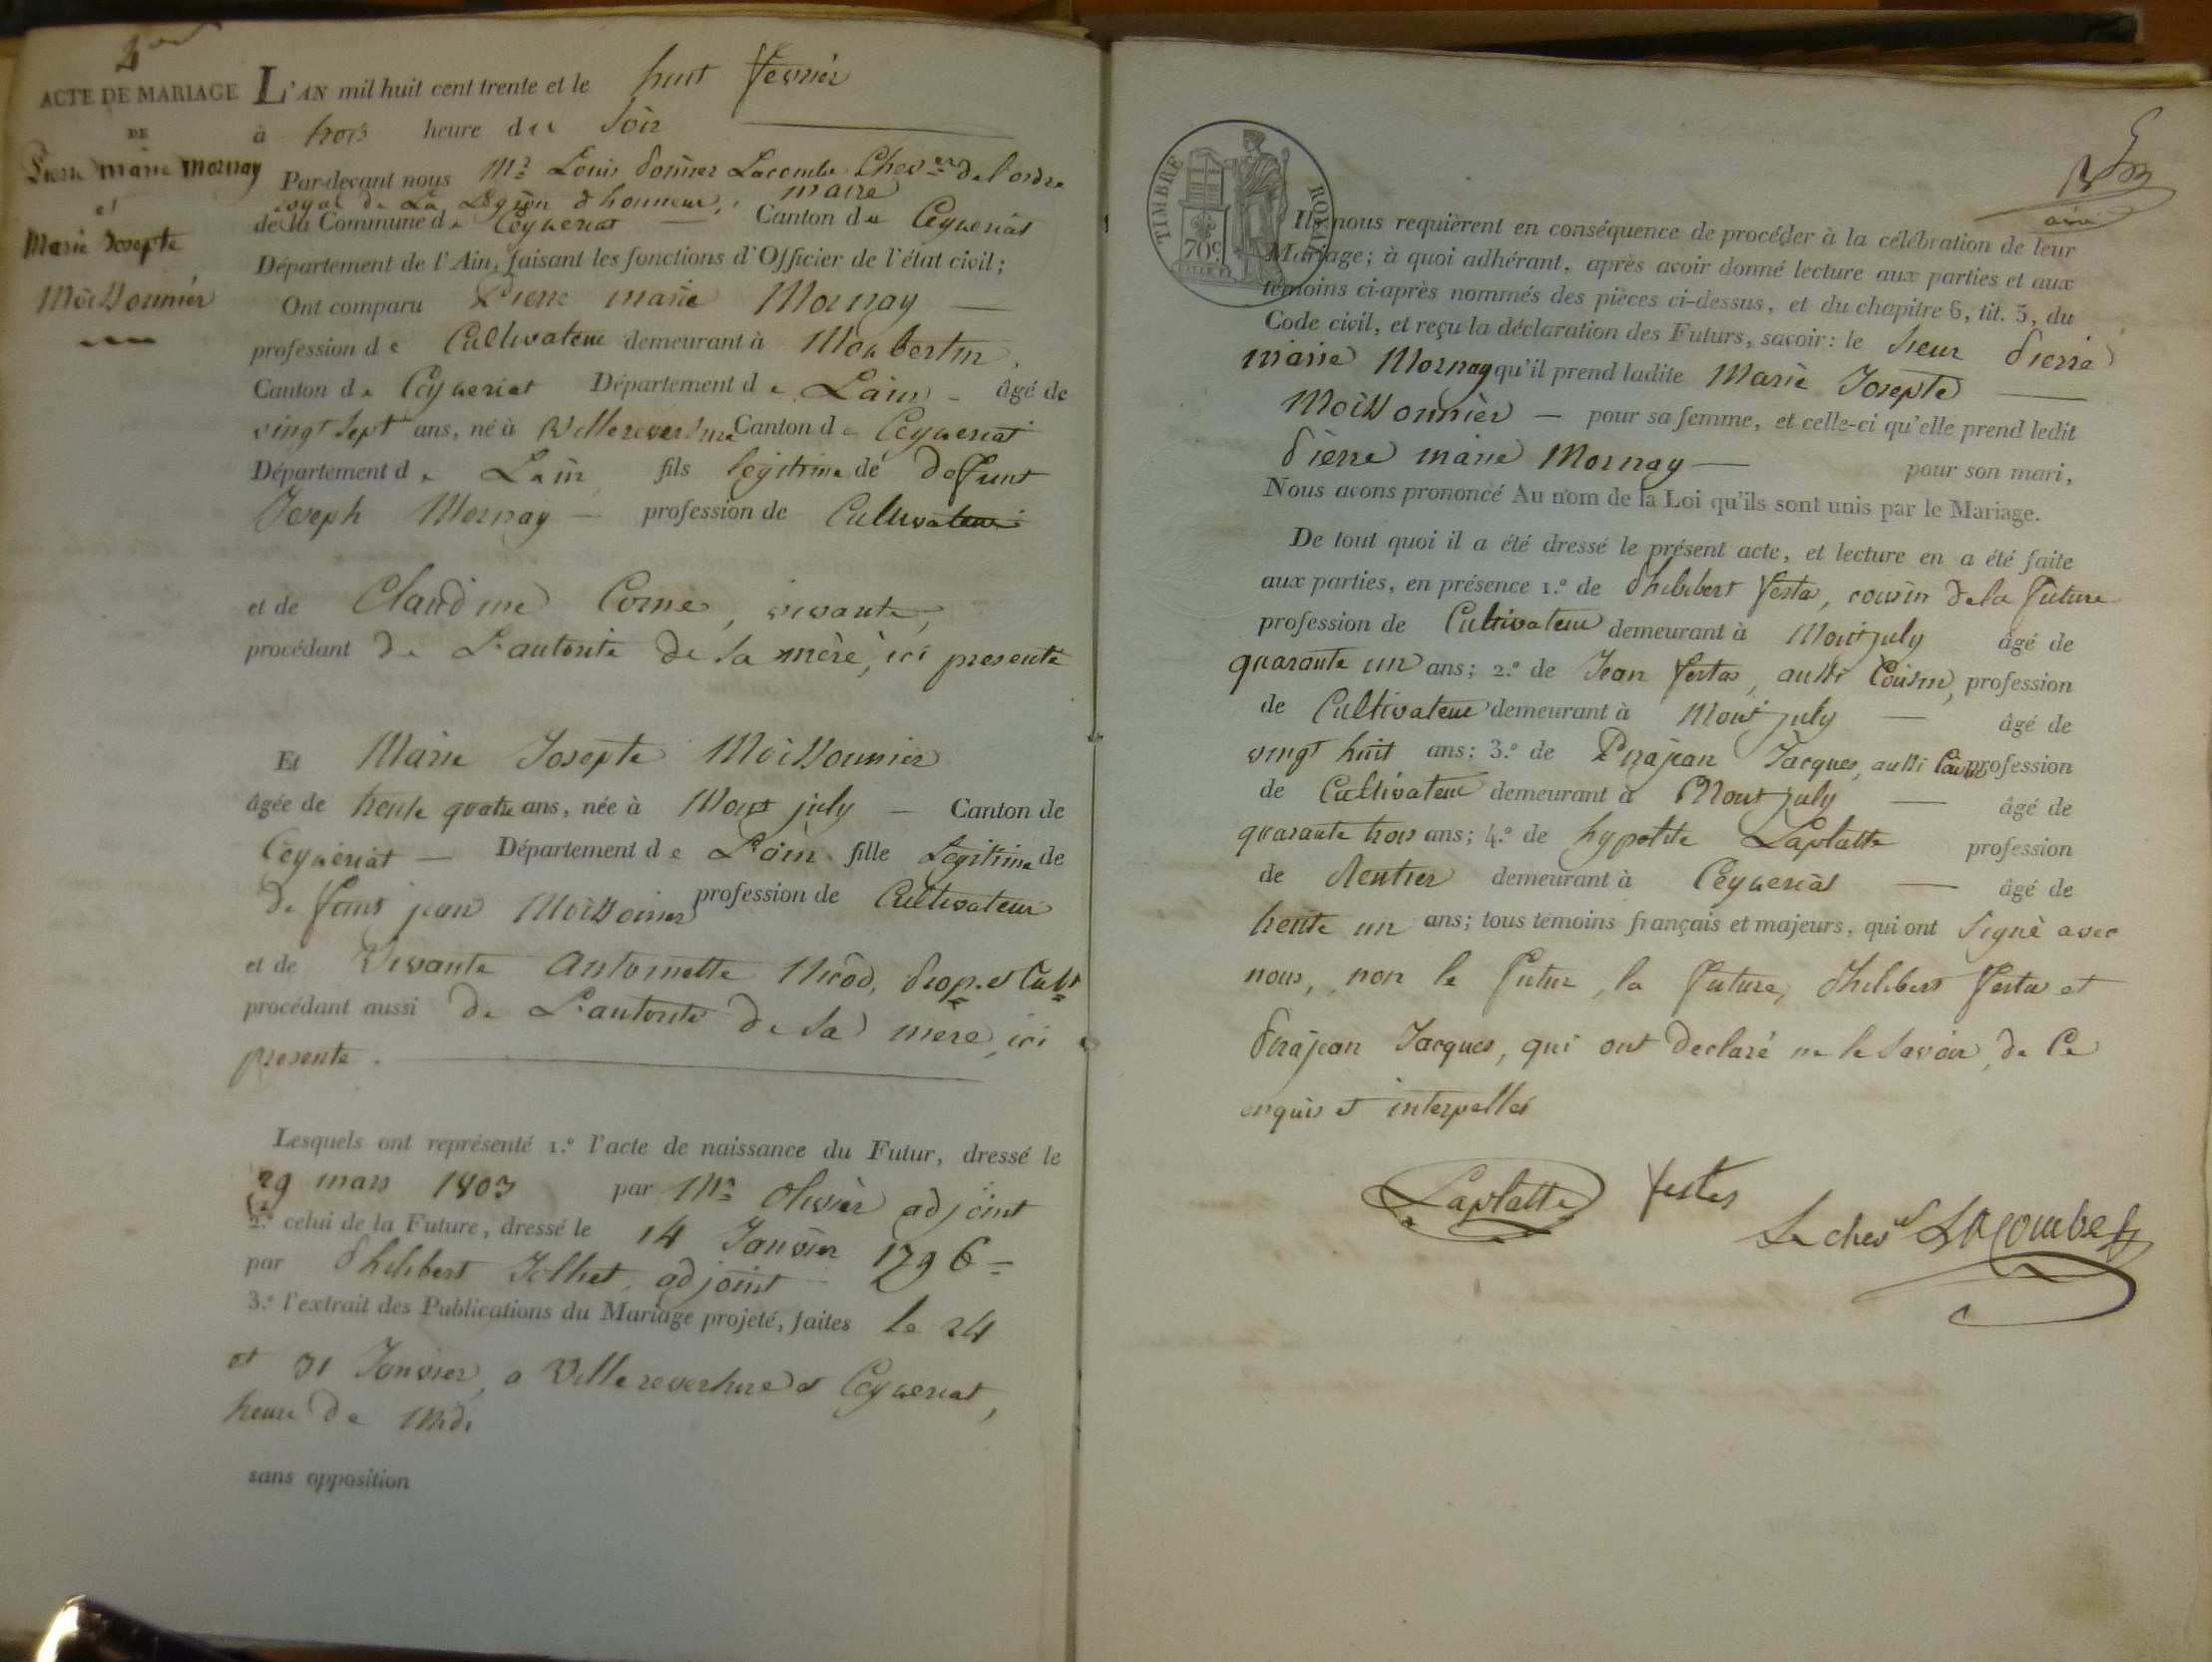 2
ACTE DE MARIAGE
DE
Pierre marie Mornay
et
Marie Josepte
Moissonnier
L'AN mil huit cent trente et le huit fevrier
à trois heure du soir
Par-devant nous Mr Louis Lacombe Chev.er de l'ordre
royal de La Légion d honneur, maire
de la Commune de Ceyzeriat Canton de Ceyzeriat
Département de l'Ain, faisant les fonctions d'Officier de l'état civil;
Ont comparu Pierre marie Mornay
profession de Cultivateur demeurant à
Canton de Ceyzeriat Département de L'ain âgé de
vingt sept ans, né à Villereversure Canton de Ceyzeriat
Département de L'ain fils légitime de defunt
Joseph Mornay profession de Cultivateur
et de Claudine Corne, vivante,
procédant De L'autorité de sa mère, ici presente
Et Marie Josepte Moissonnier
âgée de trente quatre ans, née à Mont july Canton de
Ceyzeriat Département de L'ain fille Légitime de
defunt jean Moissonnier profession de Cultivateur
et de Vivante Antoinette Nicod, prop. et Cult
procédant aussi de L'autorité de sa mere, ici
presente.
Lesquels ont représenté 1.º l'acte de naissance du Futur, dressé le
29 mars 1803 par Mr Olivier adjoint
2.º celui de la Future, dressé le 14 Janvier 1796
par Philibert adjoint
3.º l'extrait des Publications du Mariage projeté, faites le 24
et 31 Janvier, a Villereversure et Ceyzeriat,
heure de Midi
sans opposition
TIMBRE ROYAL
70c
Ils nous requièrent en conséquence de procéder à la célébration de leur
Mariage; à quoi adhérant, après avoir donné lecture aux parties et aux
témoins ci-après nommés des pièces ci-dessus, et du chapitre 6, tit. 5, du
Code civil, et reçu la déclaration des Futurs, savoir: le sieur Pierre
marie Mornay qu'il prend ladite Marie Josepte
Moissonnier pour sa femme, et celle-ci qu'elle prend ledit
Pierre marie Mornay pour son mari,
Nous avons prononcé Au nom de la Loi qu'ils sont unis par le Mariage.
De tout quoi il a été dressé le présent acte, et lecture en a été faite
aux parties, en présence 1.º de Philibert festas, cousin de la future
profession de Cultivateur demeurant à Montjuly âgé de
quarante un ans; 2.º de Jean festas, aussi Cousin, profession
de Cultivateur demeurant à Mont july âgé de
vingt huit ans; 3.º de Pirajean Jacques, aussi Cousin profession
de Cultivateur demeurant à Mont july âgé de
quarante trois ans; 4.º de hypolite Laplatte profession
de Rentier demeurant à Ceyzeriat âgé de
trente un ans; tous témoins français et majeurs, qui ont signé avec
nous, non le futur, la future, Philibert festas et
Pirajean Jacques, qui ont declaré ne le savoir, de ce
enquis et interpellés
Laplatte festas
Le chev Lacombe